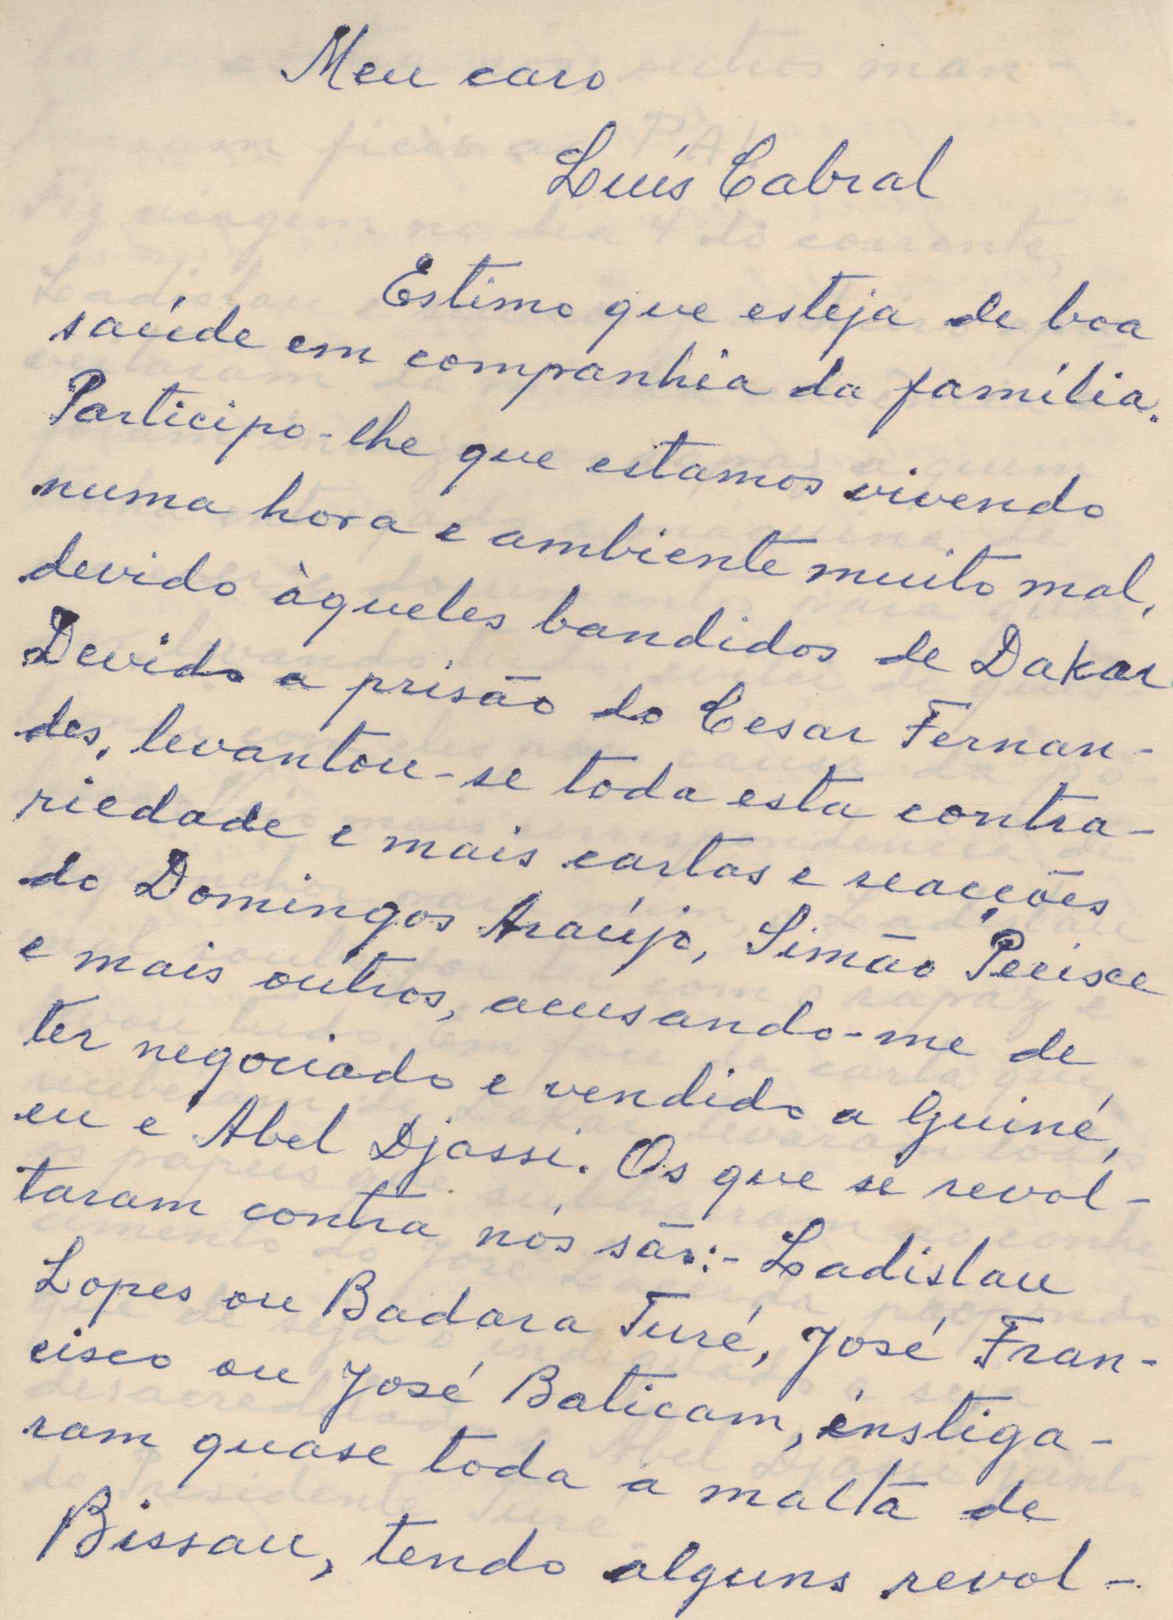 Meu caro
Luís Cabral
Estimo que esteja de boa
saúde em companhia da família.
Participo-lhe que estamos vivendo
numa hora e ambiente muito mal,
devido àqueles bandidos de Dakar.
Devido a prisão do Cesar Fernan-
des, levantou-se toda esta contra-
riedade e mais cartas e reacções
do Domingos Araújo, Simão
e mais outros, acusando-me de
ter negociado e vendido a Guiné,
eu e Abel Djassi. Os que se revol-
taram contra nós são:- Ladislau
Lopes ou Badara Turé, José Fran-
cisco ou José Baticam, instiga-
ram quase toda a malta de
Bissau, tendo alguns revol-